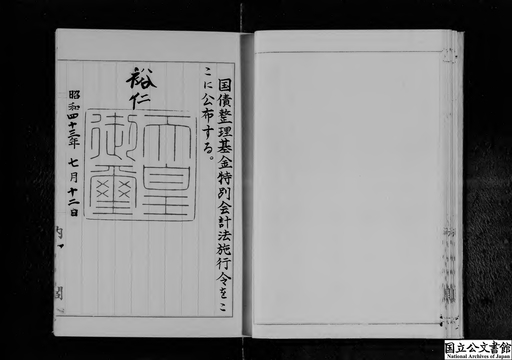 国債整理基金特別会計法施行令をこ
こに公布する。
裕仁
天皇
御璽
昭和四十三年七月十二日
内閣
国立公文書館
National Archives of Japan